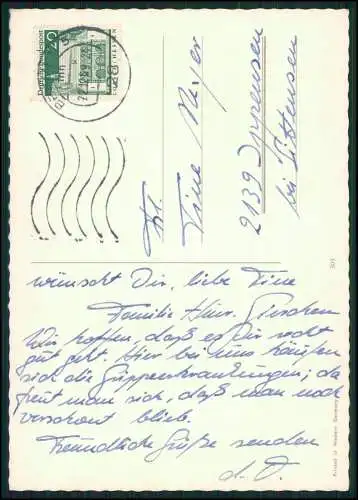 Frl.
Tine Meyer
2139 Ippensen
bei Sittensen
wünscht Dir, liebe Tine
Familie Hinr.
Wir hoffen, daß es Dir recht
gut geht. Hier bei uns häufen
sich die Grippenerkrankungen; da
freut man sich, daß man noch
verschont blieb.
Freundliche Grüße senden
d. O.
Deutsche Bundespost
20